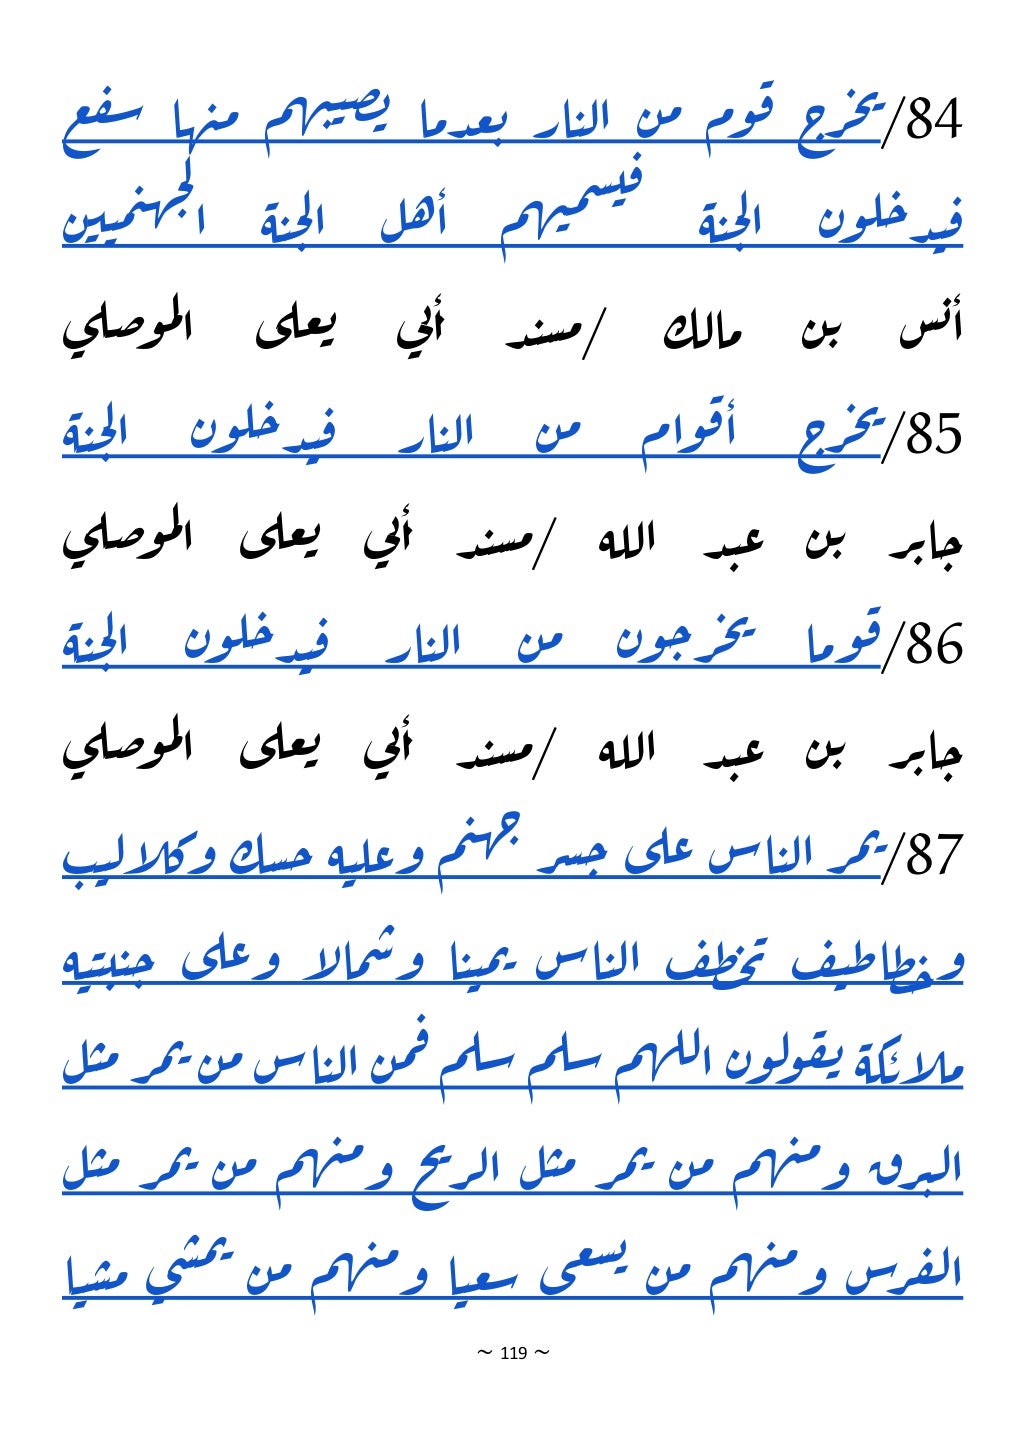 84/يخرج قوم من النار بعدما يصيبهم منها سفع
فيدخلون الجنة فيسميهم أهل الجنة الجهنميين
أنس بن مالك /مسند أبي يعلى الموصلي
85/يخرج أقوام من النار فيدخلون الجنة
جابر بن عبد الله /مسند أبي يعلى الموصلي
86/قوما يخرجون من النار فيدخلون الجنة
جابر بن عبد الله /مسند أبي يعلى الموصلي
87/يمر الناس على جسر جهنم وعليه حسك وكلاليب
وخطاطيف تخطف الناس يمينا وشمالا وعلى جنبتيه
ملائكة يقولون اللهم سلم سلم فمن الناس من يمر مثل
البرق ومنهم من يمر مثل الريح ومنهم من يمر مثل
الفرس ومنهم من يسعى سعيا ومنهم من يمشي مشيا
~ 119 ~